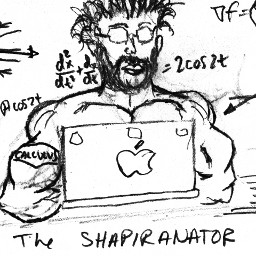 ∇f=(
d²x/dt² + dx/dt = 2cos2t
cos2t
CALCULUS
The SHAPIRANATOR